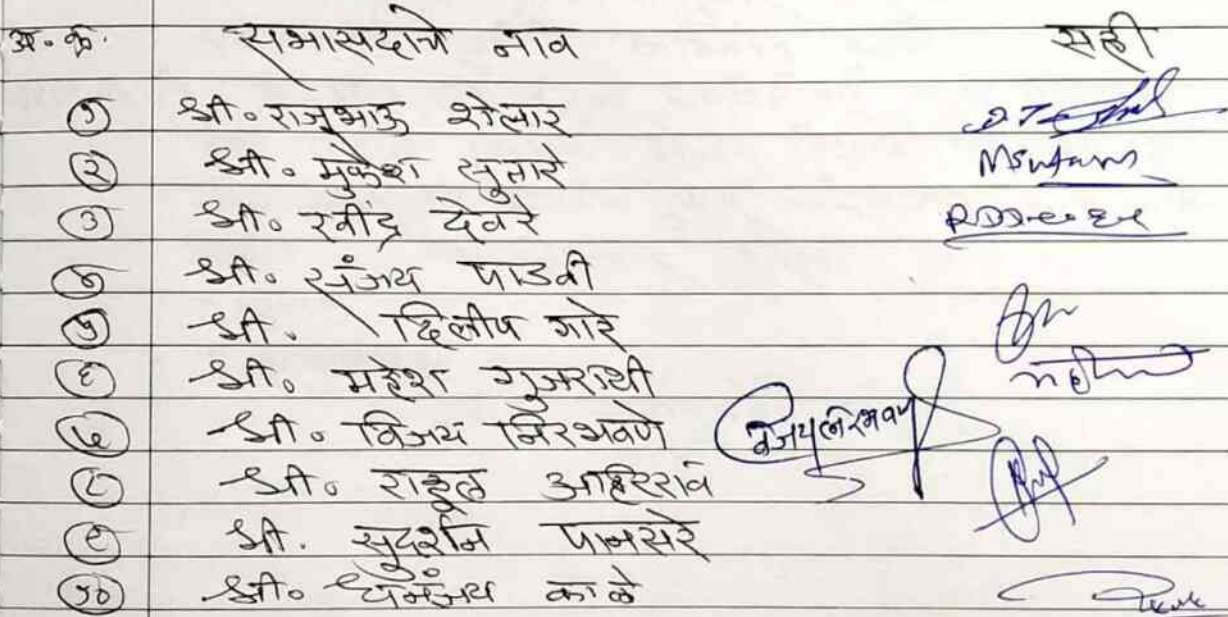 अ. क्र. सभासदाचे नाव सही
१ श्री. राजूभाऊ शेलार
२ श्री. मुकेश सुतारे
३ श्री. रवींद्र देवरे
४ श्री. संजय पाडवी
५ श्री. दिलीप गारे
६ श्री. महेश गुजराथी
७ श्री. विजय निरभवणे
८ श्री. राहूल आहिरराव
९ श्री. सुदर्शन पानसरे
१० श्री. धनंजय काळे